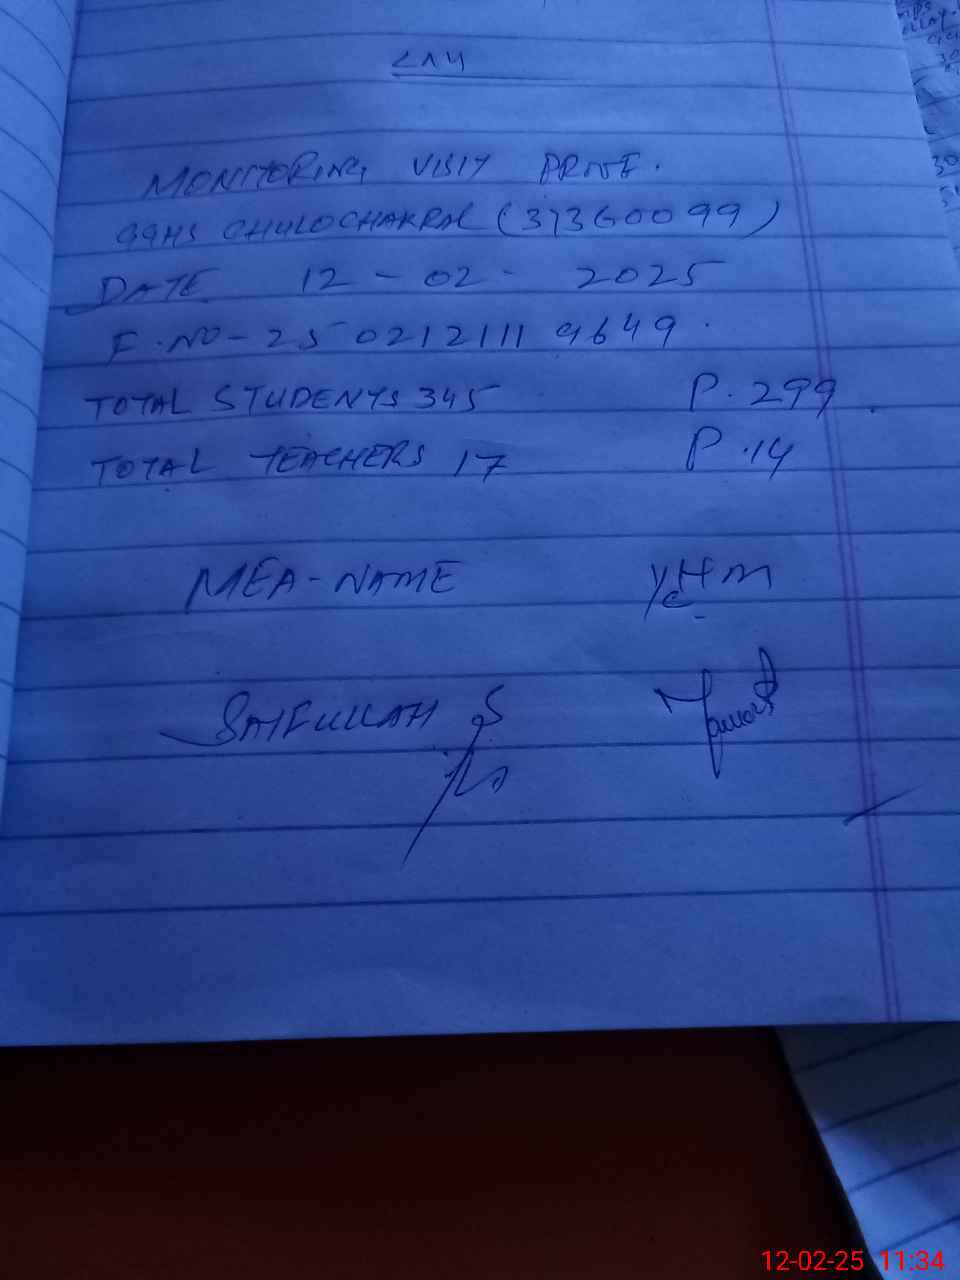 MONITORING VISIT PROVE.
GGHS CHULOCHAKRAL (37360099)
DATE 12-02-2025
F.NO-2502121119649.
TOTAL STUDENTS 345 P.299
TOTAL TEACHERS 17 P.14
MEA-NAME HM
SAIFULLAH
12-02-25 11:34